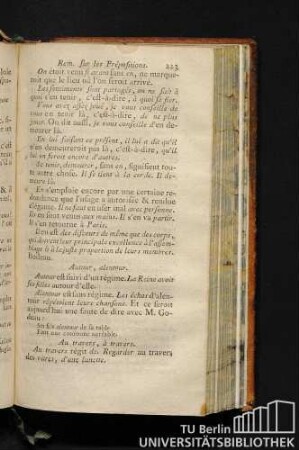 Rem. sur les Prépositions. 223
On étoit venu si avant sans en, ne marque-
roit pas le lieu où l'on seroit arrivé.
Les sentimens sont partagés, on ne sait à
quoi s'en tenir, c'est-à-dire, à quoi se fixer.
Vous avez assez joué, je vous conseille de
vous en tenir là, c'est-à-dire, de ne plus
jouer. On dit aussi, je vous conseille d'en de-
meurer là.
En lui faisant ce présent, il lui a dit qu'il
n'en demeureroit pas là, c'est-à-dire, qu'il
lui en feroit encore d'autres.
Se tenir, demeurer, sans en, signifient tou-
te autre chose. Il se tient à la corde. Il de-
meure là.
En s'emploie encore par une certaine re-
dondance que l'usage a autorisée & rendue
élégante. Il ne faut en user mal avec personne.
Ils en sont venus aux mains. Il s'en va partir.
Il s'en retourne à Paris.
Il en est des discours de même que des corps,
qui doivent leur principale excellence à l'assem-
blage & à la juste proportion de leurs membres.
Boileau.
Autour, alentour.
Autour est suivi d'un régime. La Reine avoit
ses filles autour d'elle.
Alentour est sans régime. Les échos d'alen-
tour répétoient leurs chansons. Et ce seroit
aujourd'hui une faute de dire avec M. Go-
deau :
Ses fils alentour de sa table
Font une couronne
Au travers, à travers.
Au travers régit de. Regarder au travers
des vitres, d'une lunette.
TU Berlin
UNIVERSITÄTSBIBLIOTHEK